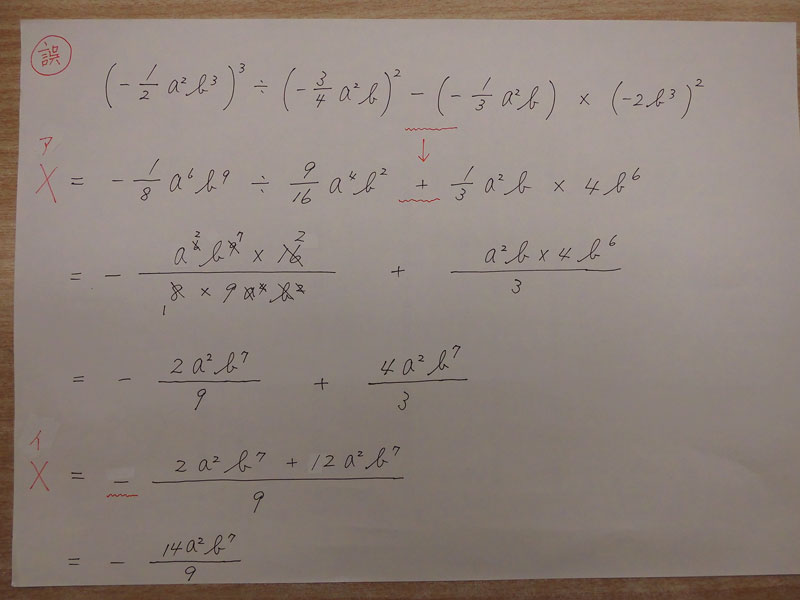 誤
(-1/2 a²b³)³ ÷ (-3/4 a²b)² - (-1/3 a²b) × (-2b³)²
ア
X = -1/8 a⁶b⁹ ÷ 9/16 a⁴b² + 1/3 a²b × 4b⁶
= - a⁶²b⁹⁷ × 16² / 8₁ × 9a⁴b² + a²b × 4b⁶ / 3
= - 2a²b⁷/9 + 4a²b⁷/3
イ
X = - 2a²b⁷ + 12a²b⁷ / 9
= - 14a²b⁷/9